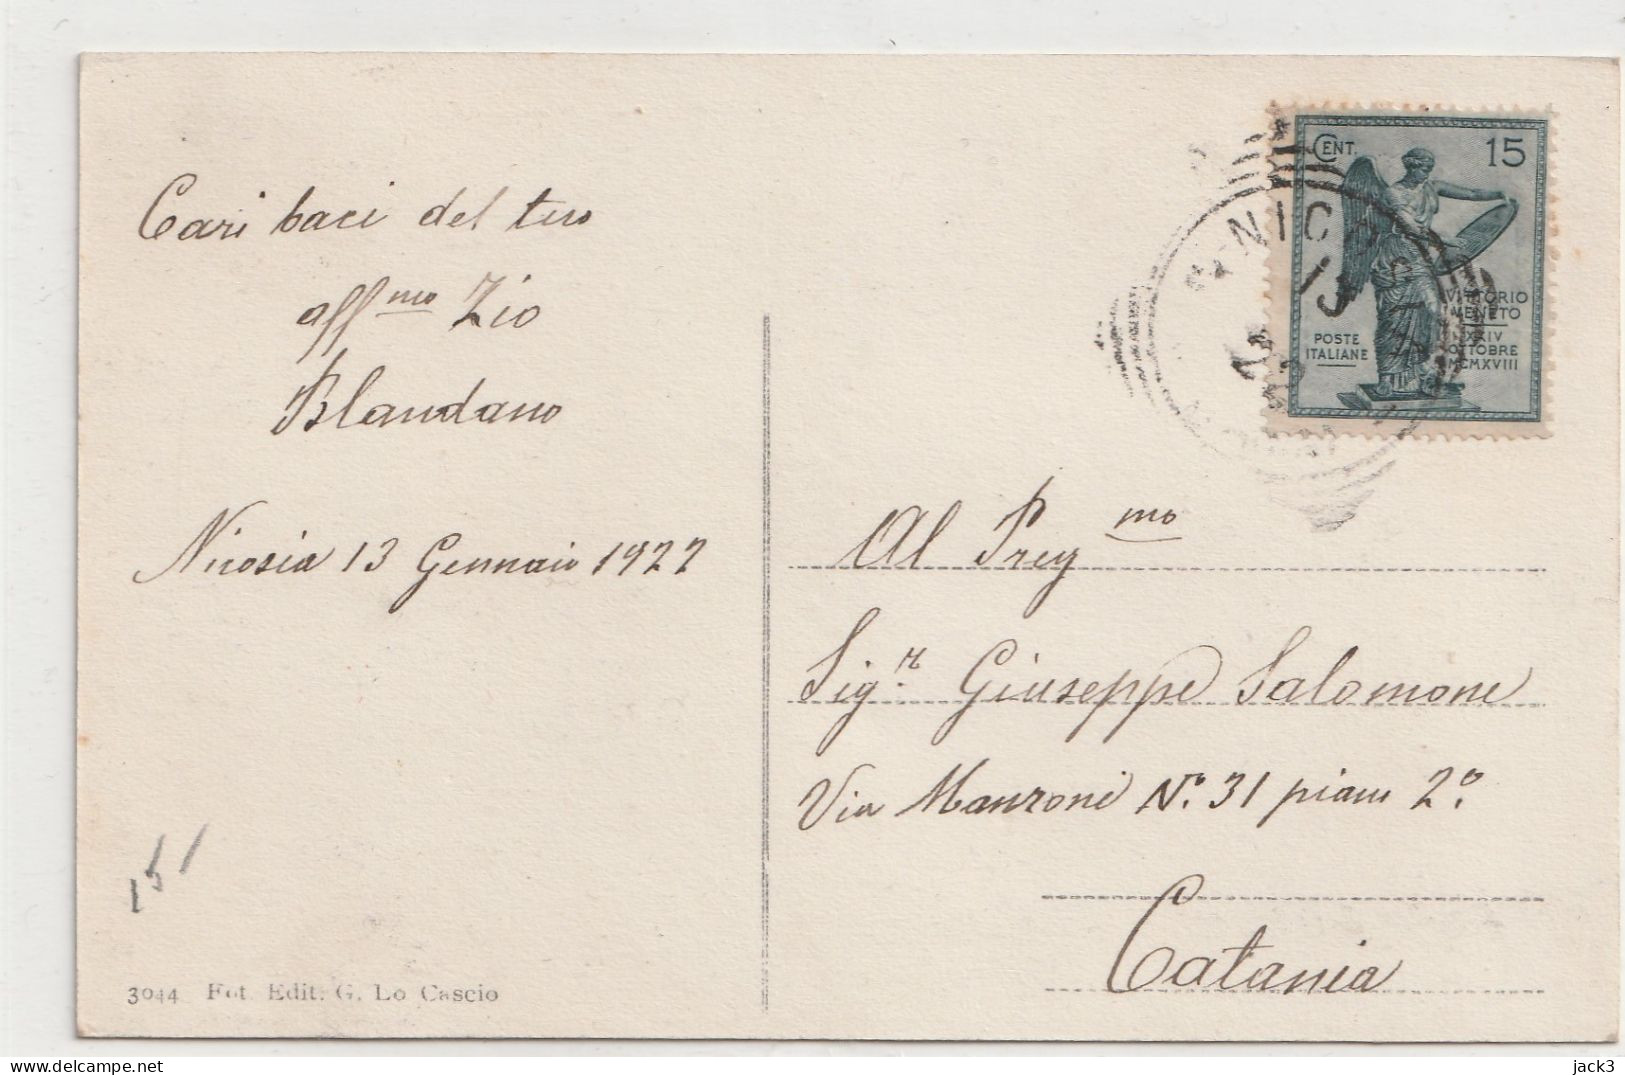 Cari baci del tuo
aff.mo Zio
Blandano
Nicosia 13 Gennaio 1922
151
3044 Fot. Edit. G. Lo Cascio
CENT. 15
VITTORIO
VENETO
XXIV
OTTOBRE
MCMXVIII
POSTE
ITALIANE
NICOSIA
13
Al Preg mo
Sig.r Giuseppe Salomone
Via Manzoni N.o 31 piano 2o
Catania
jack3